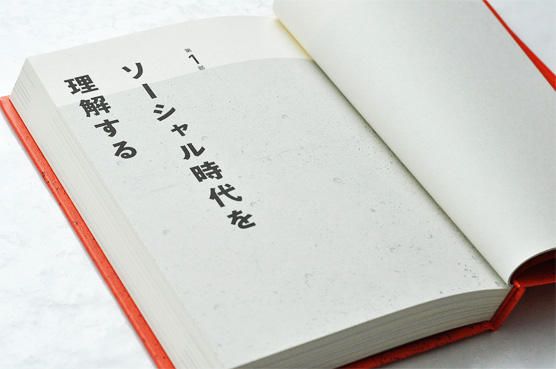 第1部
ソーシャル時代を
理解する